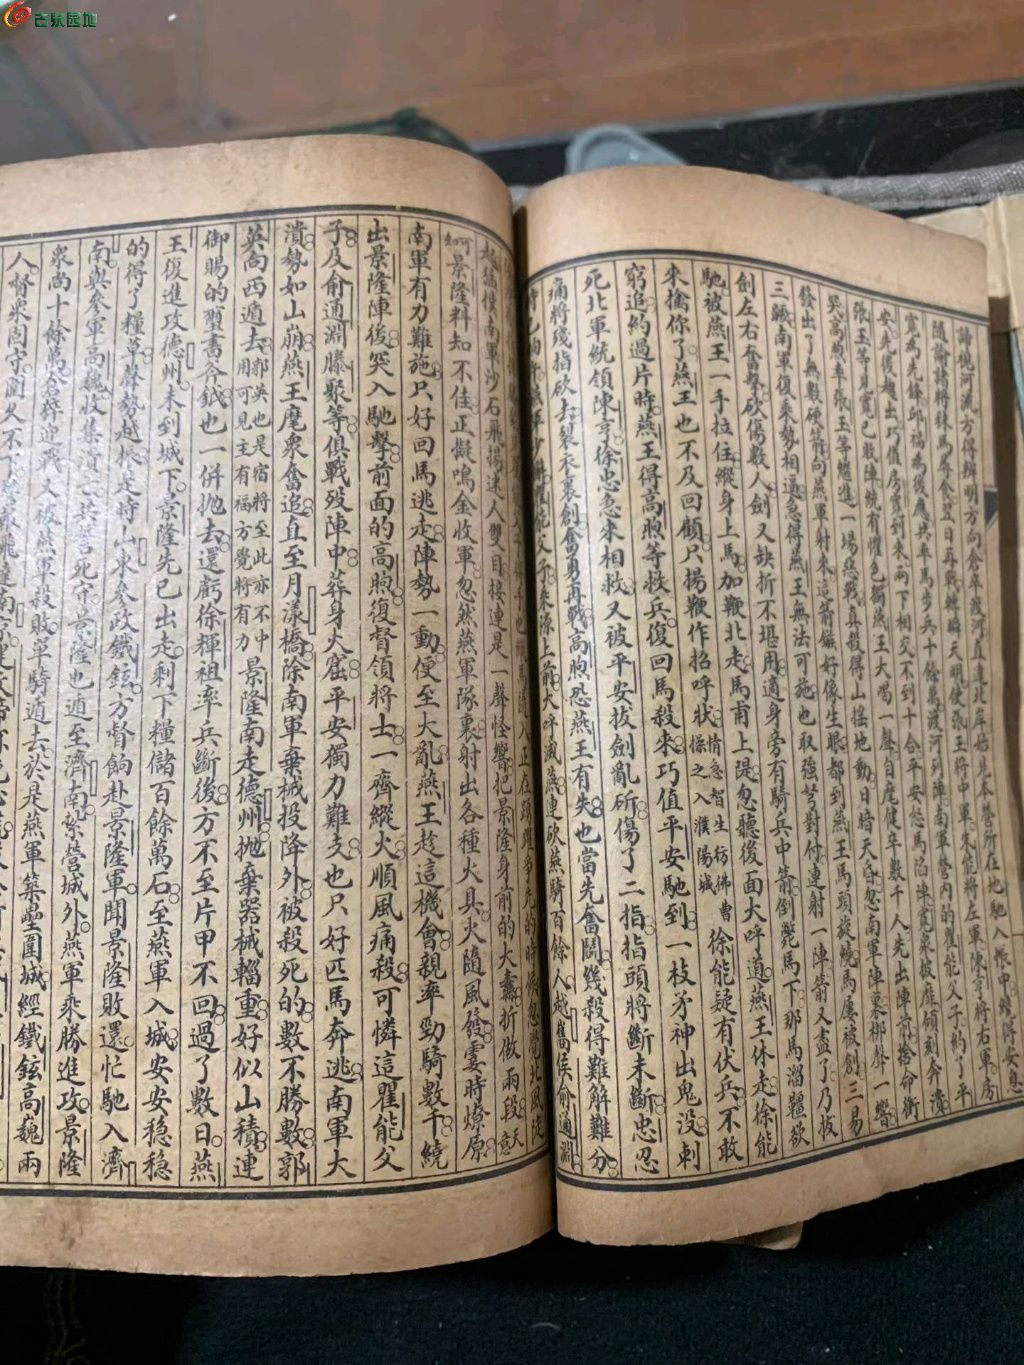 古泉园地
諦視河流方得辨明方向倉卒渡河直達北岸始見本營所在地馳入帳中纔得安息
隨諭諸將秣馬蓐食翌日再戰轉瞬天明便張玉將中軍朱能將左軍陳亨將右軍房
寬為先鋒邱福為後應共率馬步兵十餘萬渡河列陣南軍營內的瞿能父子約了平
安先後趨出巧值房寬到來兩下相交不到十合平安怒馬陷陣寬眾披靡傾刻奔潰
張玉等見寬已敗陣統有懼色獨燕王大喝一聲自麾健卒數千人先出陣前捨命衝
突高煦率張玉等繼進一場惡戰真殺得山搖地動日暗天昏忽南軍陣裏梆聲一響
發出了無數硬箭向燕軍射來這箭鏃好像生眼都到燕王馬頭旋繞馬屢被創三易
三蹶南軍復乘勢相逼急得燕王無法可施也取強弩對付連射一陣箭又盡了乃拔
劍左右奮擊砍傷數人劍又缺折不堪用適身旁有騎兵中箭倒斃馬下那馬溜韁欲
馳被燕王一手拉住縱身上馬加鞭北走馬甫上隄忽聽後面大呼道燕王休走徐能
來擒你了燕王也不及回顧只揚鞭作招呼狀情急智生彷彿曹操之入濮陽城徐能疑有伏兵不敢
窮追約過片時燕王得高煦等救兵復回馬殺來巧值平安馳到一枝矛神出鬼没刺
死北軍統領陳亨徐忠急來相救又被平安拔劍亂斫傷了二指指頭將斷未斷忠忍
痛將殘指砍去裂衣裹創奮勇再戰高煦恐燕王有失也當先奮鬬幾殺得難解難分
父子來陣上前大呼滅燕連砍燕騎百餘人越嶲侯俞通淵
正在踴躍爭先的時候忽覺北風徒
起猛撲南軍沙石飛揚迷人雙目接連是一聲怪響把景隆身前的大纛折做兩段天意
如何景隆料知不佳正擬鳴金收軍忽然燕軍隊裏射出各種火具火隨風發霎時燎原
南軍有力難施只好回馬逃走陣勢一動便至大亂燕王趁這機會親率勁騎數千繞
出景隆陣後突入馳擊前面的高煦復督領將士一齊縱火順風痛殺可憐這瞿能父
子及俞通淵滕聚等俱戰歿陣中葬身火窟平安獨力難支也只好匹馬奔逃南軍大
潰勢如山崩燕王麾眾奮追直至月漾橋除南軍棄械投降外被殺死的數不勝數郭
英向西遁去郭英也是宿將至此亦不中用可見主有福方覺將有力景隆南走德州拋棄器械輜重好似山積連
御賜的璽書斧鉞也一併拋去還虧徐輝祖率兵斷後方不至片甲不回過了數日燕
王復進攻德州未到城下景隆先已出走剩下糧儲百餘萬石至燕軍入城安安穩穩
的得了糧草聲勢越振是時山東參政鐵鉉方督餉赴景隆軍聞景隆敗還忙馳入濟
南與參軍高魏收集潰亡共誓死守景隆也遁至濟南紮營城外燕軍乘勝進攻景隆
眾尚十餘萬倉猝迎戰又被燕軍殺敗單騎遁去於是燕軍築壘圍城經鐵鉉高魏兩
人督眾固守圍久不下